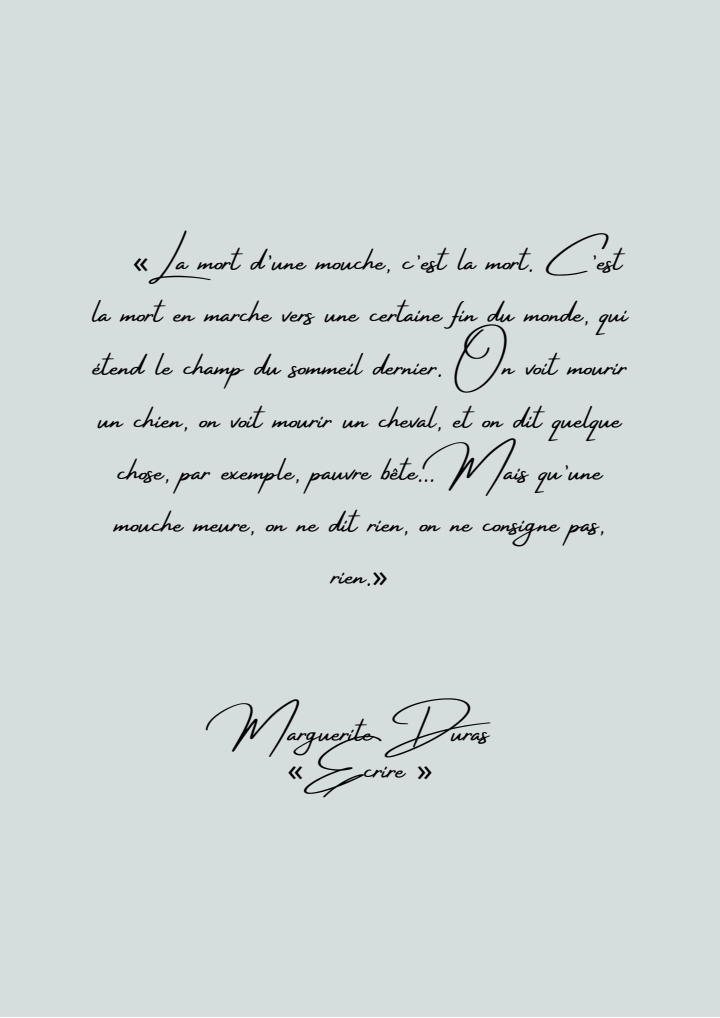 « La mort d'une mouche, c'est la mort. C'est
la mort en marche vers une certaine fin du monde, qui
étend le champ du sommeil dernier. On voit mourir
un chien, on voit mourir un cheval, et on dit quelque
chose, par exemple, pauvre bête... Mais qu'une
mouche meure, on ne dit rien, on ne consigne pas,
rien.»
Marguerite Duras
« Ecrire »